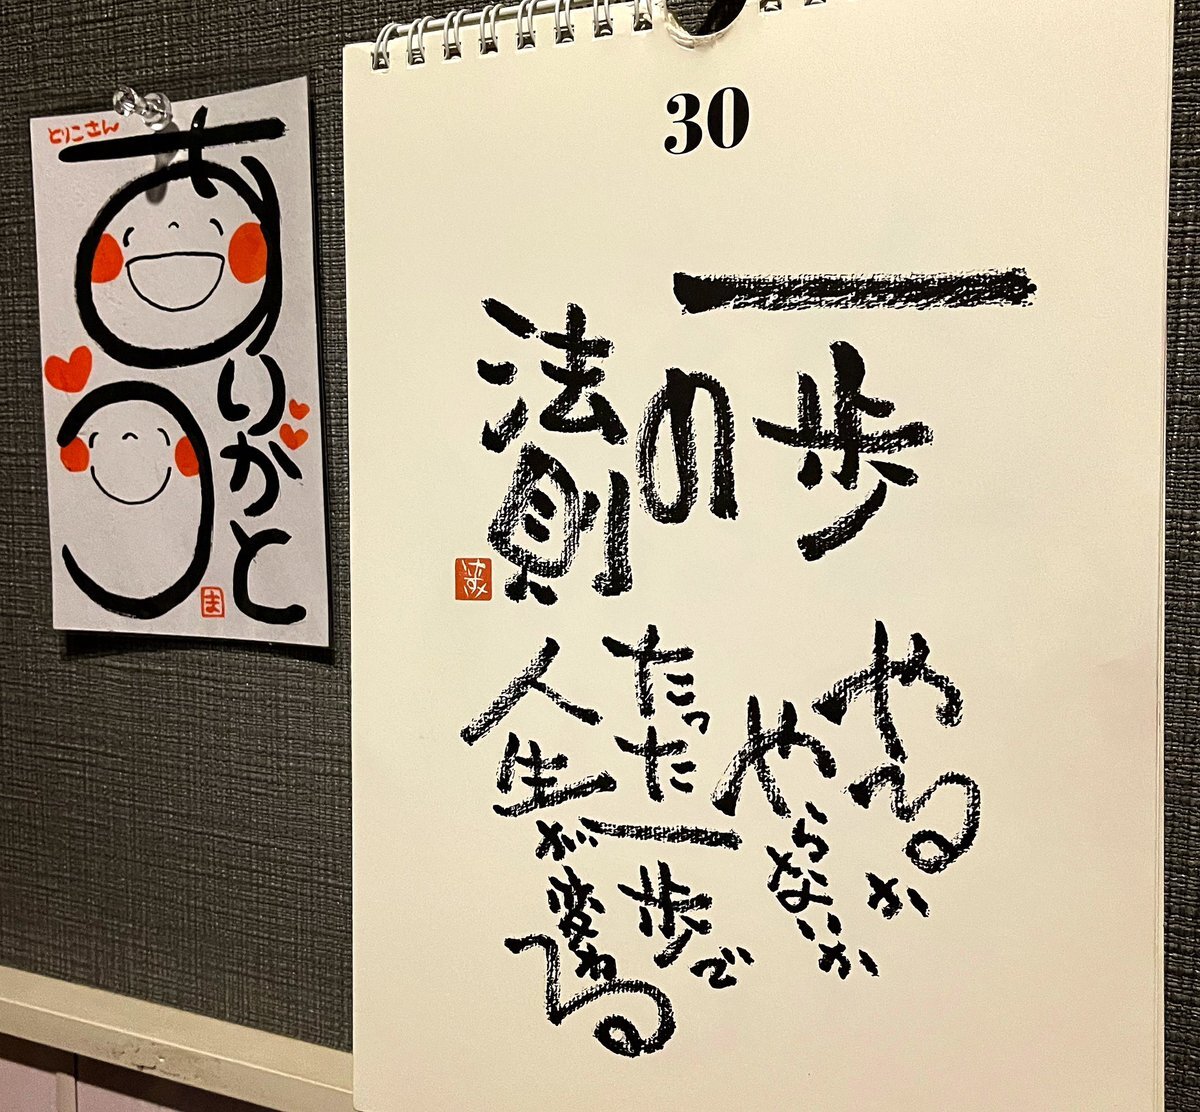 とりこさん
ありがとう
ま
30
一歩
の
法則
やるか
やらないか
たった一歩で
人生が変わる